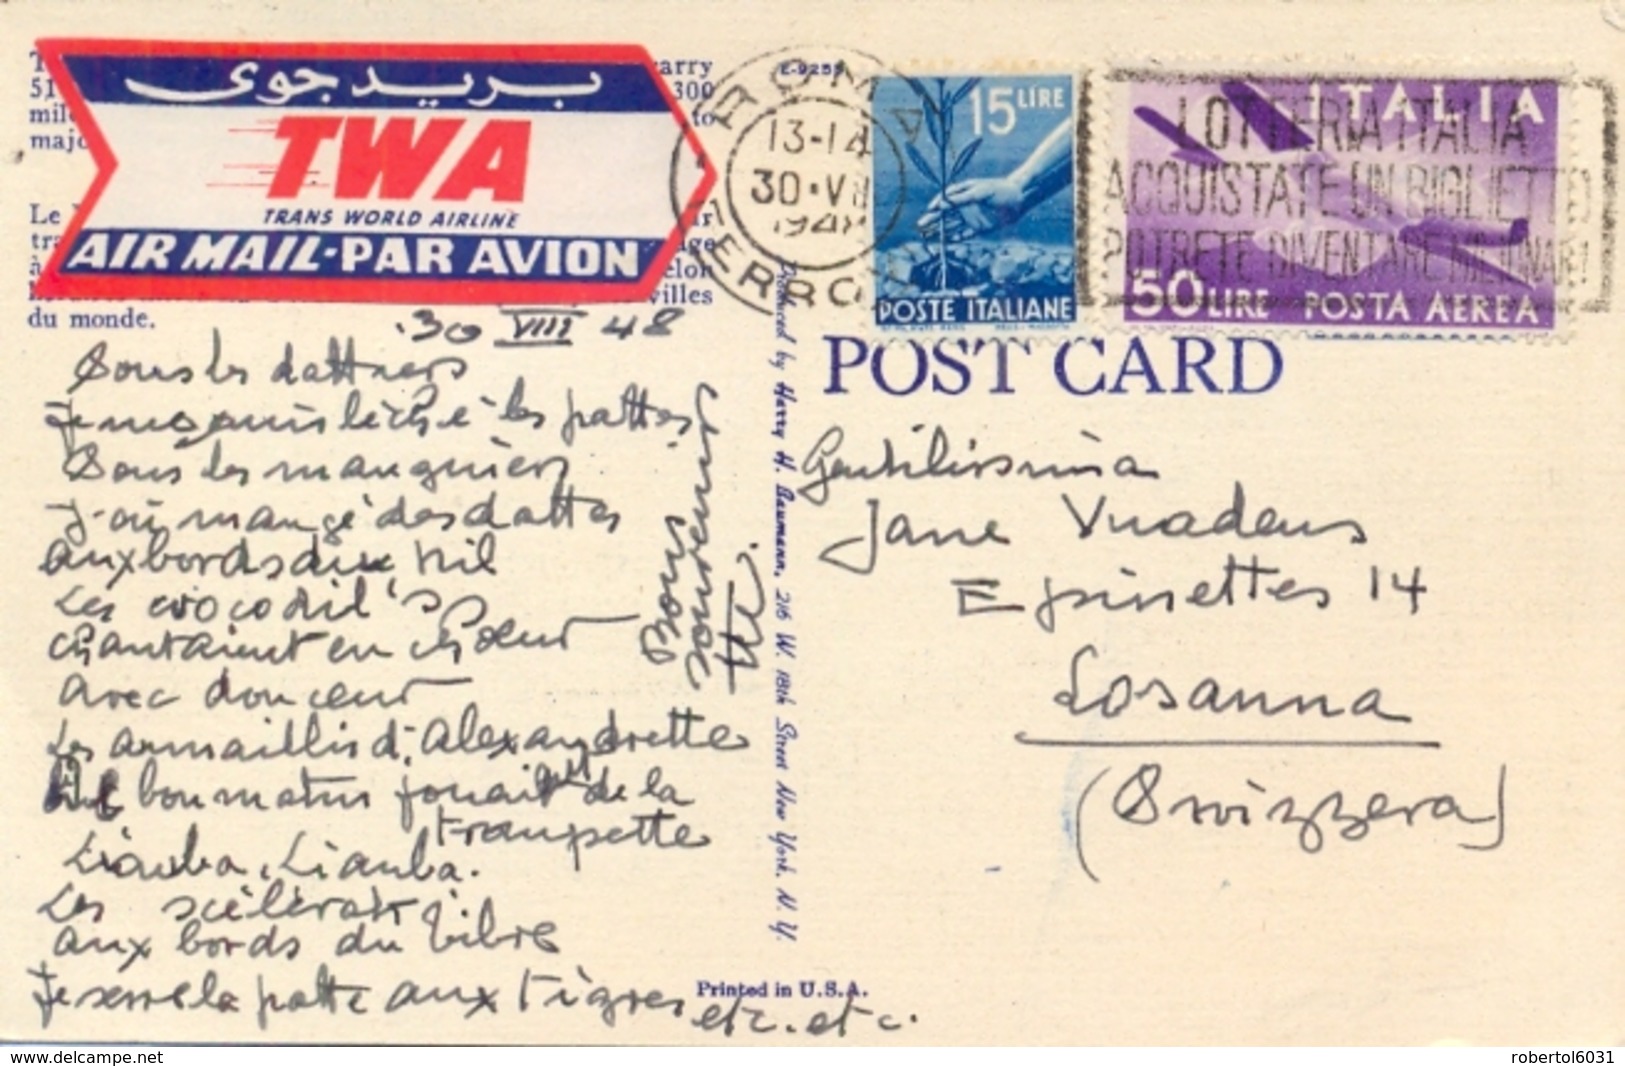 arry
51 300
mil to
majo
بريد جوى
TWA
TRANS WORLD AIRLINE
AIR MAIL-PAR AVION
Le
tra age
à elon
villes
du monde.
E-9255
ROMA
13-14
30·VIII
1948
FERROVIA
15 LIRE
POSTE ITALIANE
ITALIA
50 LIRE POSTA AEREA
LOTTERIA ITALIA
ACQUISTATE UN BIGLIETTO
POTRETE DIVENTARE MILIONARI
POST CARD
.30 VIII 48
Sous les dattiers
je me suis léché les pattes
Sous les manguiers
j'ai mangé des dattes
aux bords du Nil
Les crocodil's
chantaient en chœur
avec douceur
Les armaillis d'Alexandrette
bon matin jouait de la
trompette
Liauba, Liauba.
Les scélérats
aux bords du Tibre
Je serre la patte aux tigres
etc. etc.
Bons
souvenirs
Produced by Harry H. Baumann, 216 W. 18th Street New York, N. Y.
Printed in U.S.A.
Gentilissima
Jane Vuadens
Epinettes 14
Losanna
(Svizzera)
www.delcampe.net
robertol6031